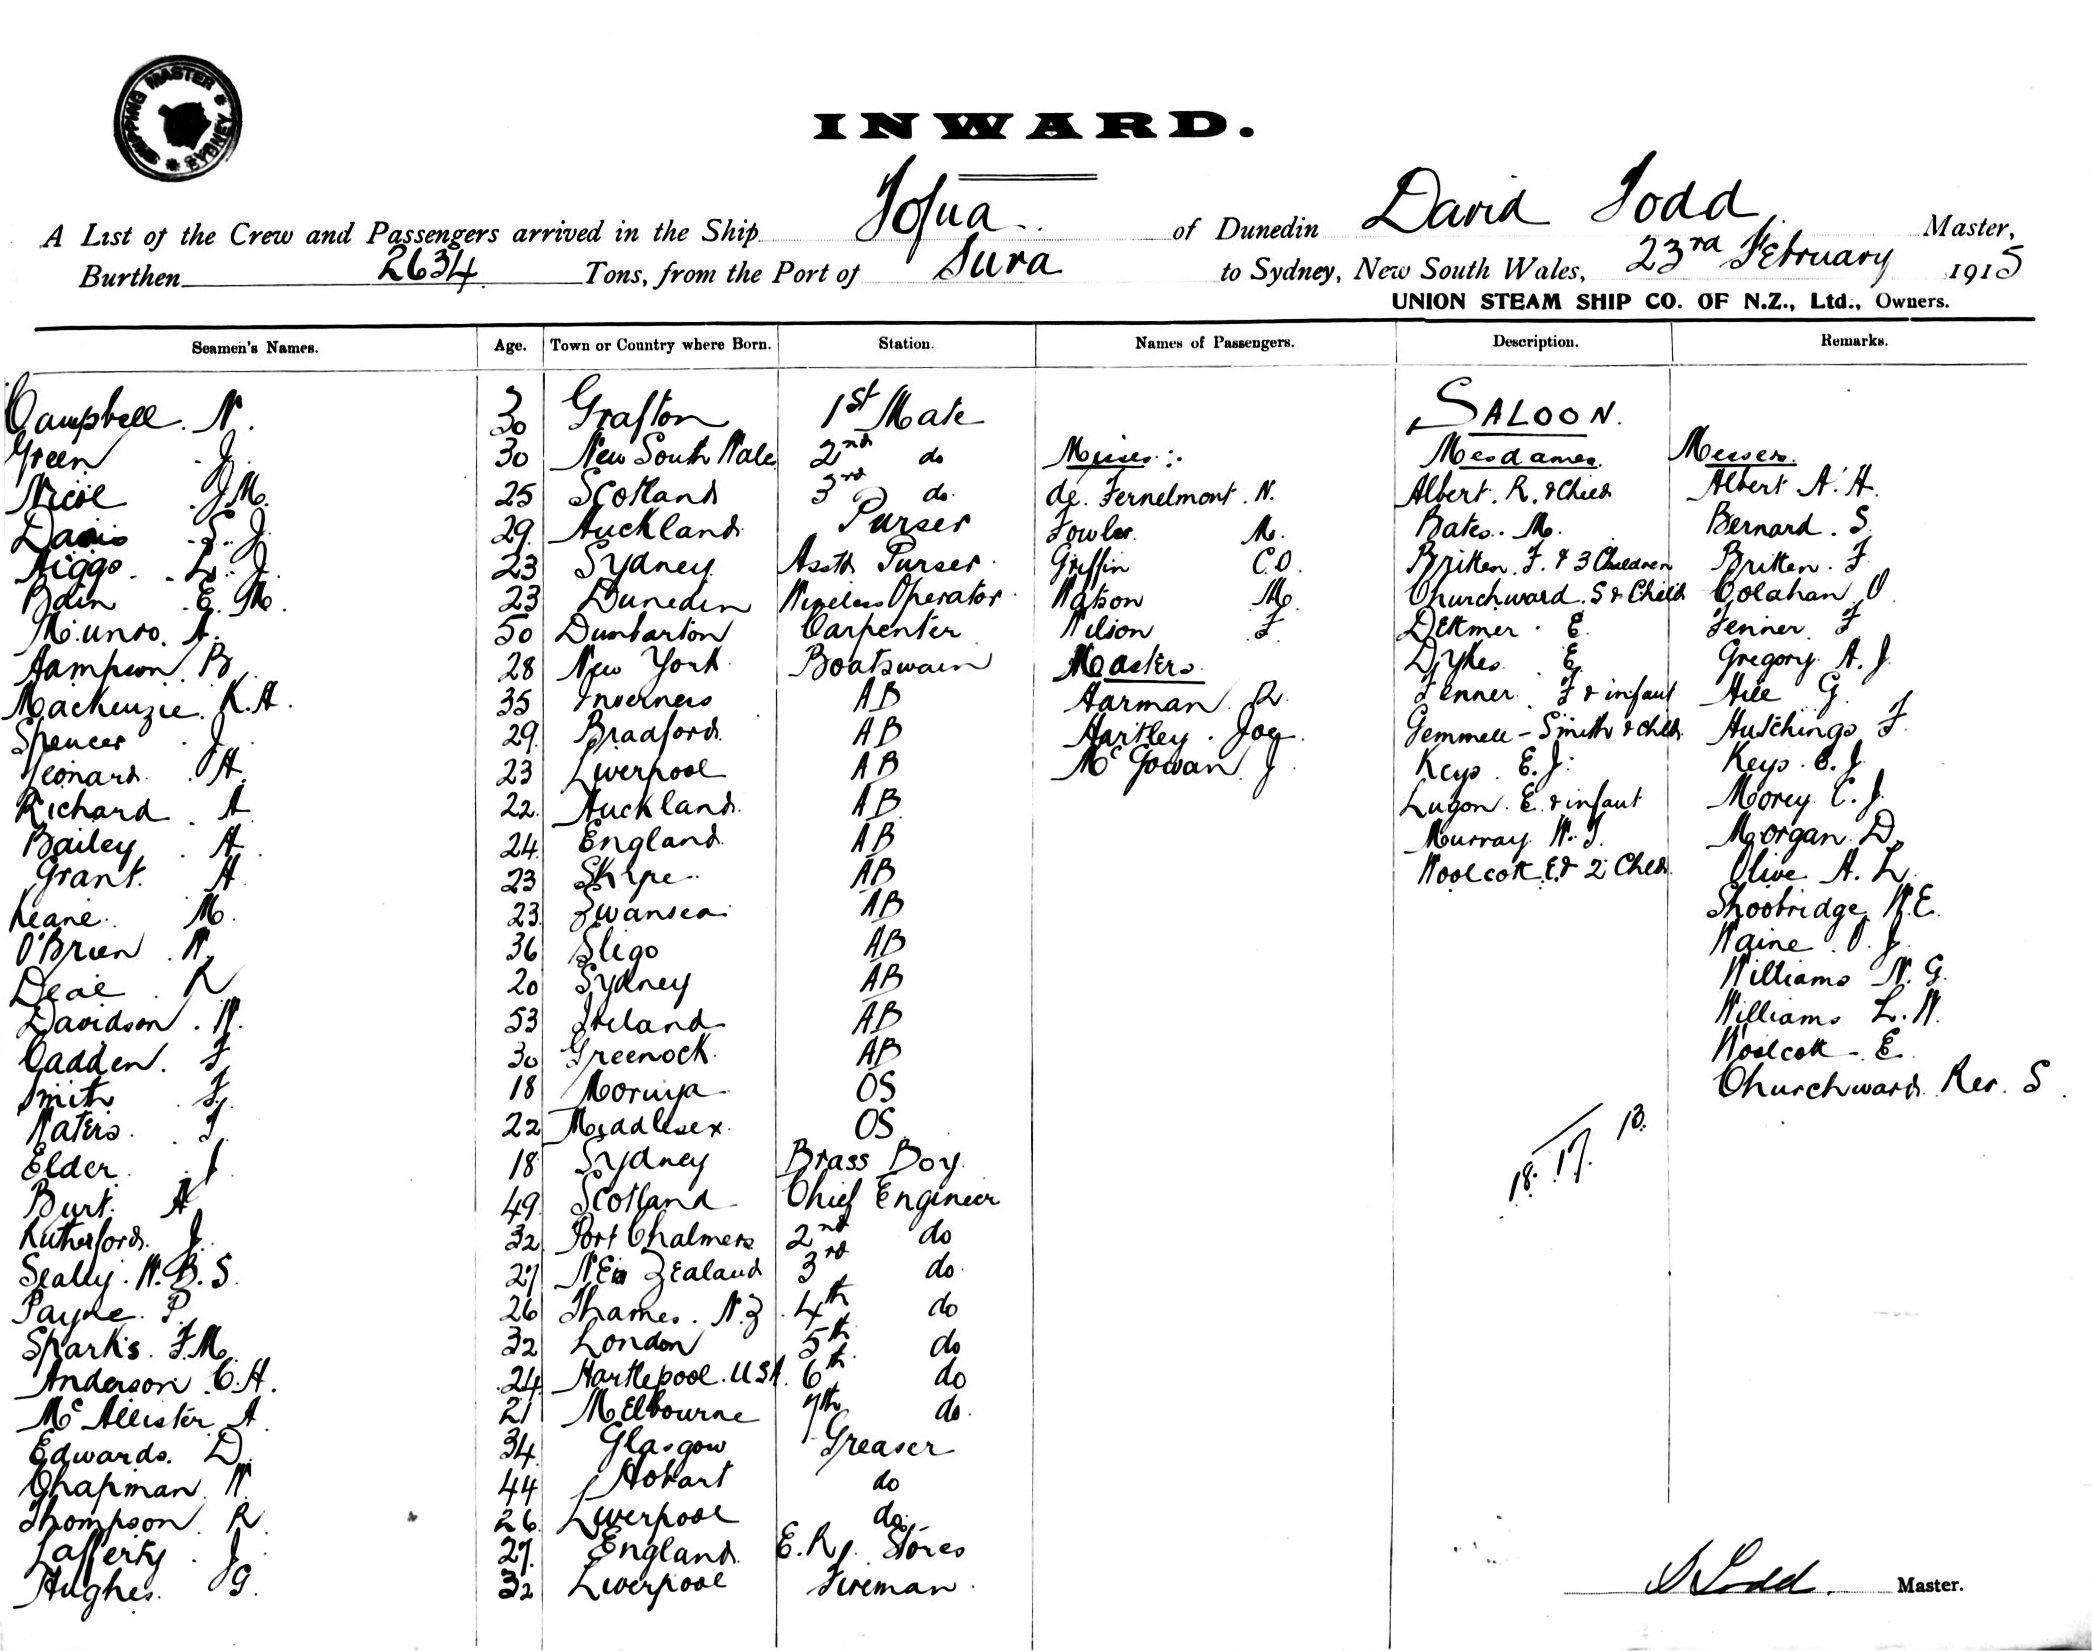 SHIPPING MASTER SYDNEY
INWARD.
A List of the Crew and Passengers arrived in the Ship Tofua of Dunedin David Todd Master,
Burthen 2634 Tons, from the Port of Suva to Sydney, New South Wales, 23rd February 1915
UNION STEAM SHIP CO. OF N.Z., Ltd., Owners.
Seamen's Names. Age. Town or Country where Born. Station. Names of Passengers. Description. Remarks.
SALOON.
Campbell. N. 30 Grafton 1st Mate
Green J 30 New South Wales 2nd do Misses: Mesdames Messers.
Nicol J.M. 25 Scotland 3rd do. de. Fernelmont. N. Albert. R. & Child Albert A. H.
Davis S. J. 29 Auckland Purser Fowler M. Bates. M. Bernard. S.
Higgs. L. J. 23 Sydney Asstt Purser. Griffin C.O. Britten. F. & 3 Children Britten. F.
Bain E. M. 23 Dunedin Wireless Operator Watson M. Churchward. S & Child Colahan O
Munro. A. 50 Dunbarton Carpenter Wilson F. Dettmer. E. Fenner. F
Hampson. B. 28 New York Boatswain Masters. Dykes. E. Gregory. A. J.
Mackenzie. K.A. 35 Inverness AB Harman R. Fenner. F & infant Hill G.
Spencer J 29 Bradford AB Hartley. Joy. Gemmell-Smith & child Hutchings F.
Leonard. H. 23 Liverpool AB McGowan J. Keys. E. J. Keys. E. J.
Richard A 22 Auckland. AB Luzon. E. & infant Morey C. J.
Bailey. A. 24 England AB Murray W. J. Morgan. D.
Grant. A 23 Skye AB Woolcott. E. & 2 Child. Olive A. L.
Keane. M. 23 Swansea AB Shoobridge W. E.
O'Brien W. 36 Sligo AB Waine O. J.
Deal R 20 Sydney AB Williams N. G.
Davidson. W. 53 Ireland AB Williams L. W.
Cadden. F 30 Greenock AB Woolcott. E.
Smith F. 18 Moruya OS Churchward. Rev. S.
Waters. T 22 Middlesex. OS
18. 17. 13.
Elder J 18 Sydney Brass Boy.
Burt. A 49 Scotland Chief Engineer
Rutherford. J. 32 Port Chalmers 2nd do
Sealy. W. B. S. 27 New Zealand 3rd do.
Payne. P. 26 Thames. N.Z. 4th do
Sparks. F.M. 32 London 5th do
Anderson. C.H. 24 Hartlepool. USA. 6th do
McAllister A 21 Melbourne 7th do.
Edwards. D. 34 Glasgow Greaser
Chapman. W. 44 Hobart do
Thompson. R. 26 Liverpool do.
Lafferty. J. 27. England. E.R. Stores
Hughes. G. 32 Liverpool Fireman.
D Todd. Master.